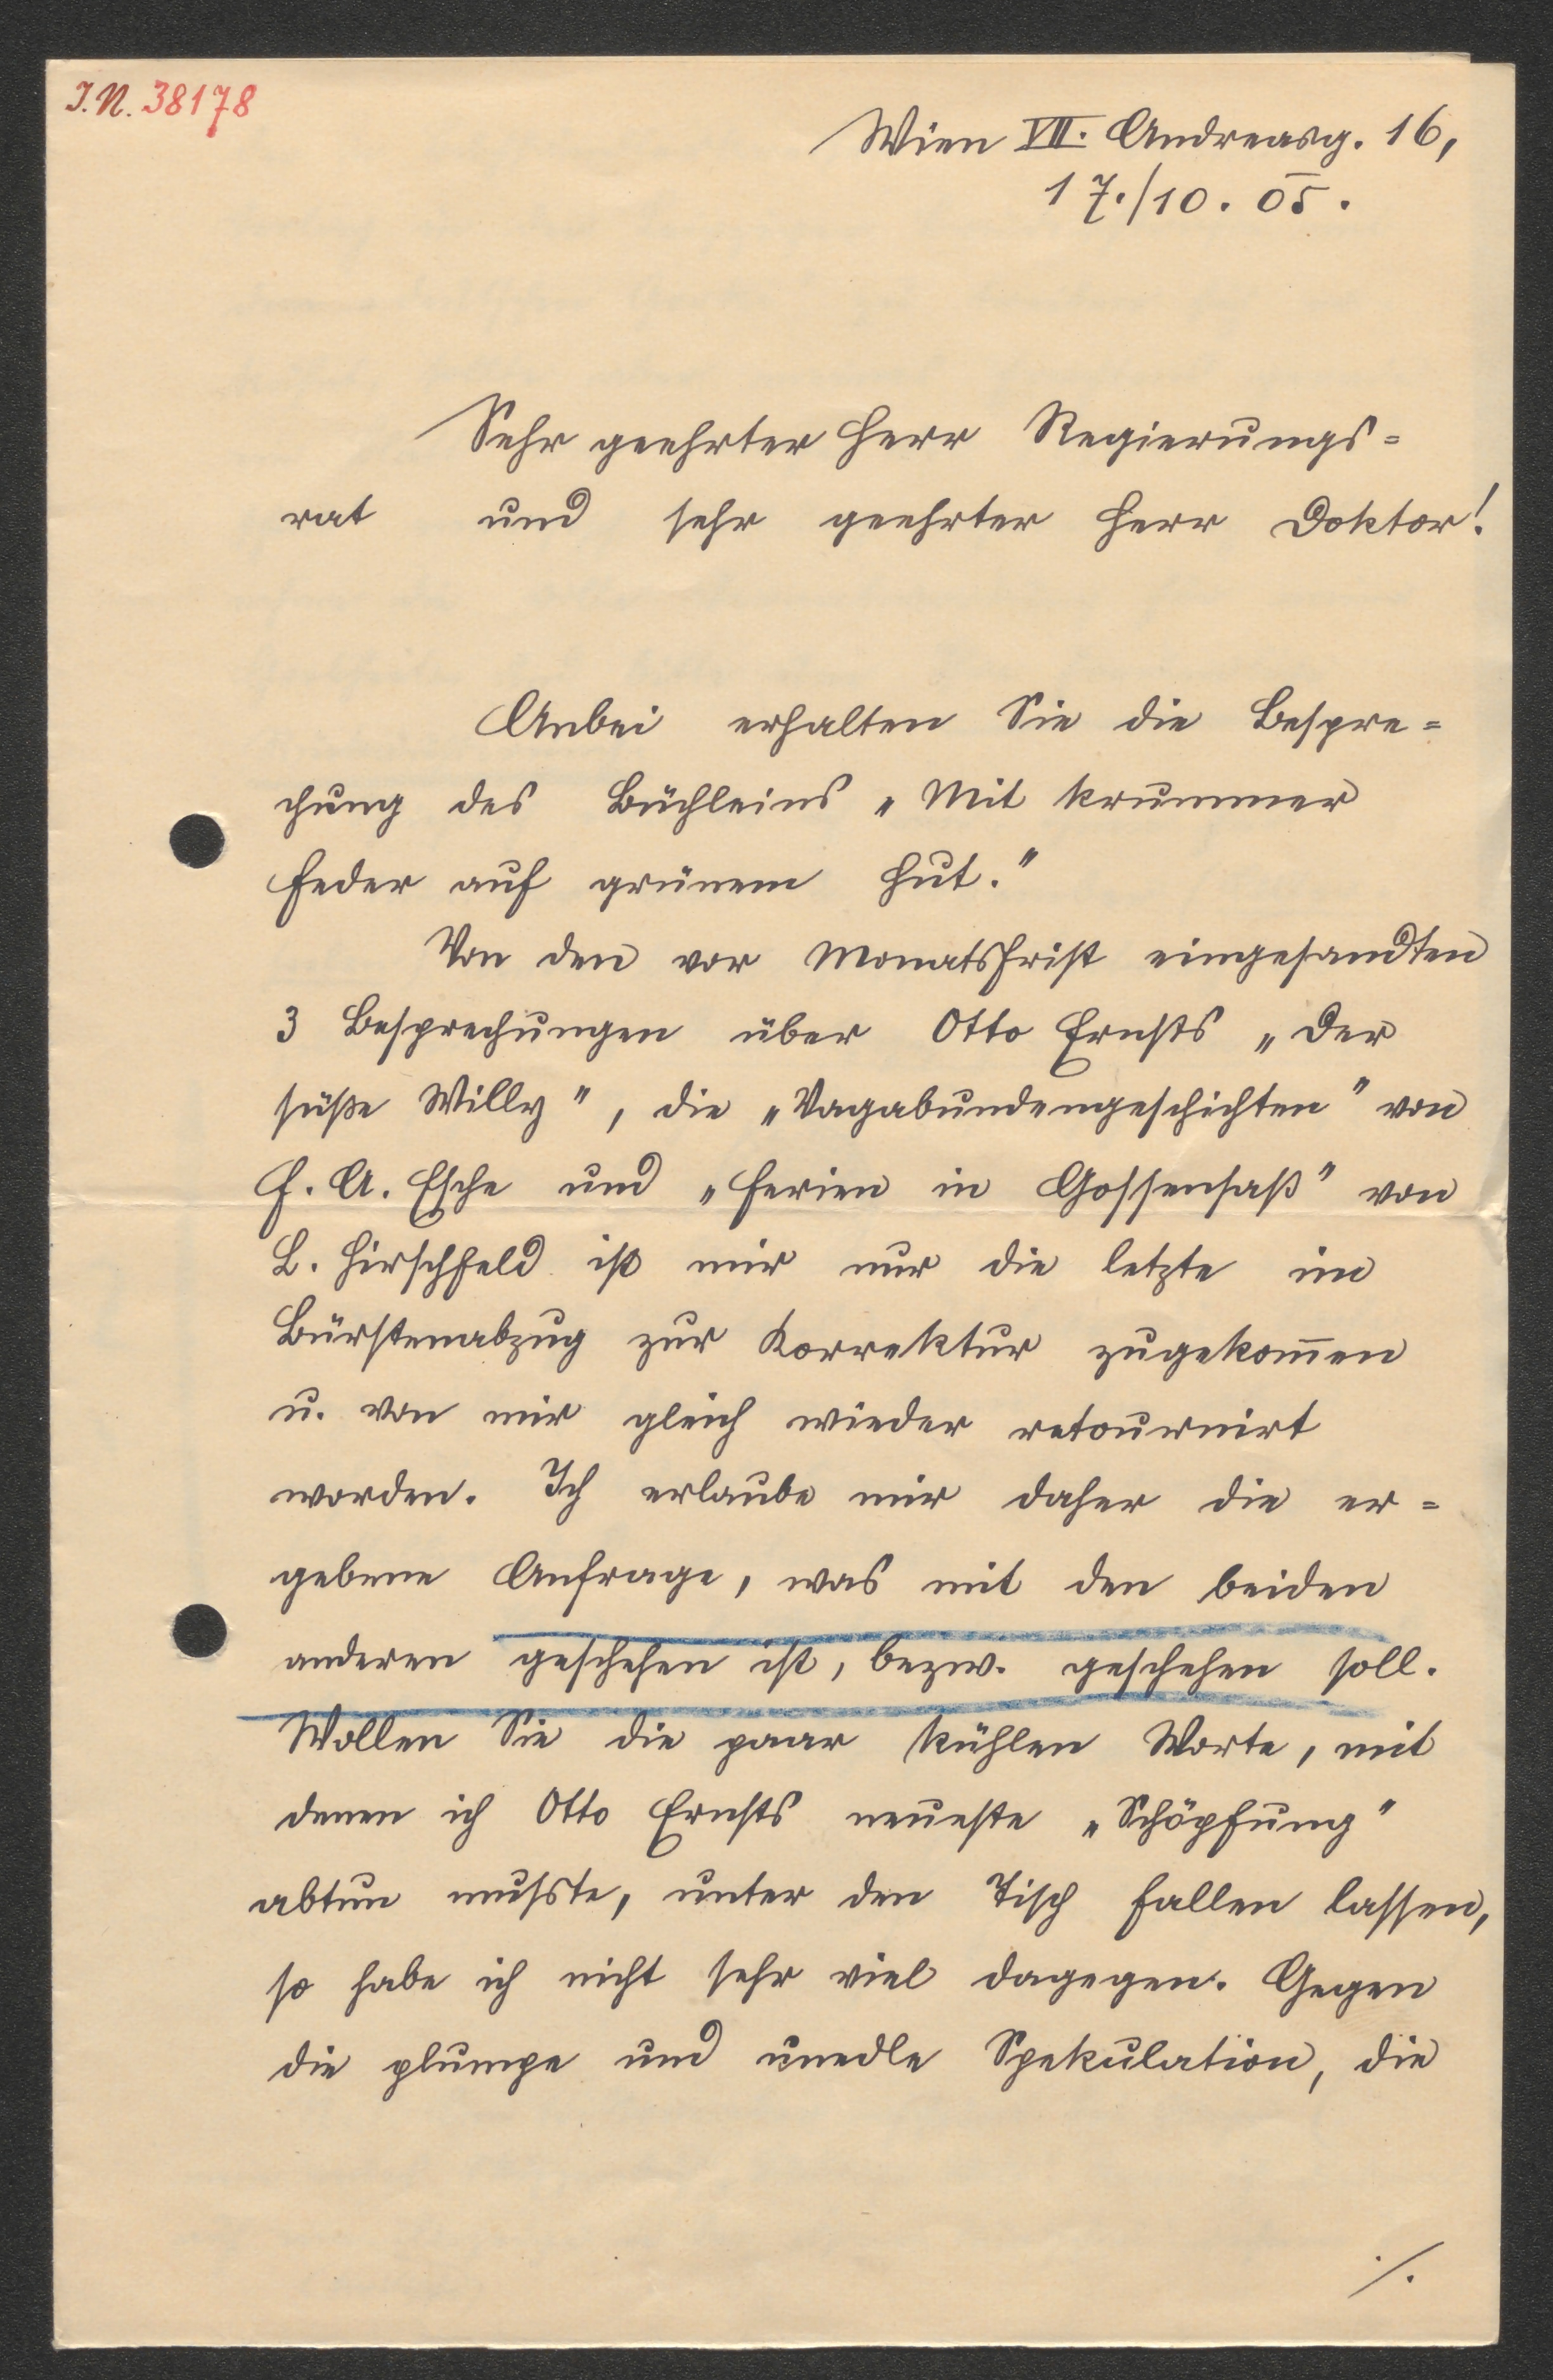 I.N. 38178
Wien VII. Andreasg. 16,
17./10. 05.
Sehr geehrter Herr Regierungs=
rat und sehr geehrter Herr Doktor!
Anbei erhalten Sie die Bespre=
chung des Büchleins „Mit krummer
Feder auf grünem Hut."
Von den vor Monatsfrist eingesandten
3 Besprechungen über Otto Ernsts „Der
süße Willy", die „Vagabundengeschichten" von
F. A. Esche und „Ferien in Gossensaß" von
L. Hirschfeld ist mir nur die letzte im
Bürstenabzug zur Korrektur zugekom̅en
u. von mir gleich wieder retournirt
worden. Ich erlaube mir daher die er=
gebene Anfrage, was mit den beiden
anderen geschehen ist, bezw. geschehen soll.
Wollen Sie die paar kühlen Worte, mit
denen ich Otto Ernsts neueste „Schöpfung"
abtun mußte, unter den Tisch fallen lassen,
so habe ich nicht sehr viel dagegen. Gegen
die plumpe und unedle Spekulation, die
./.